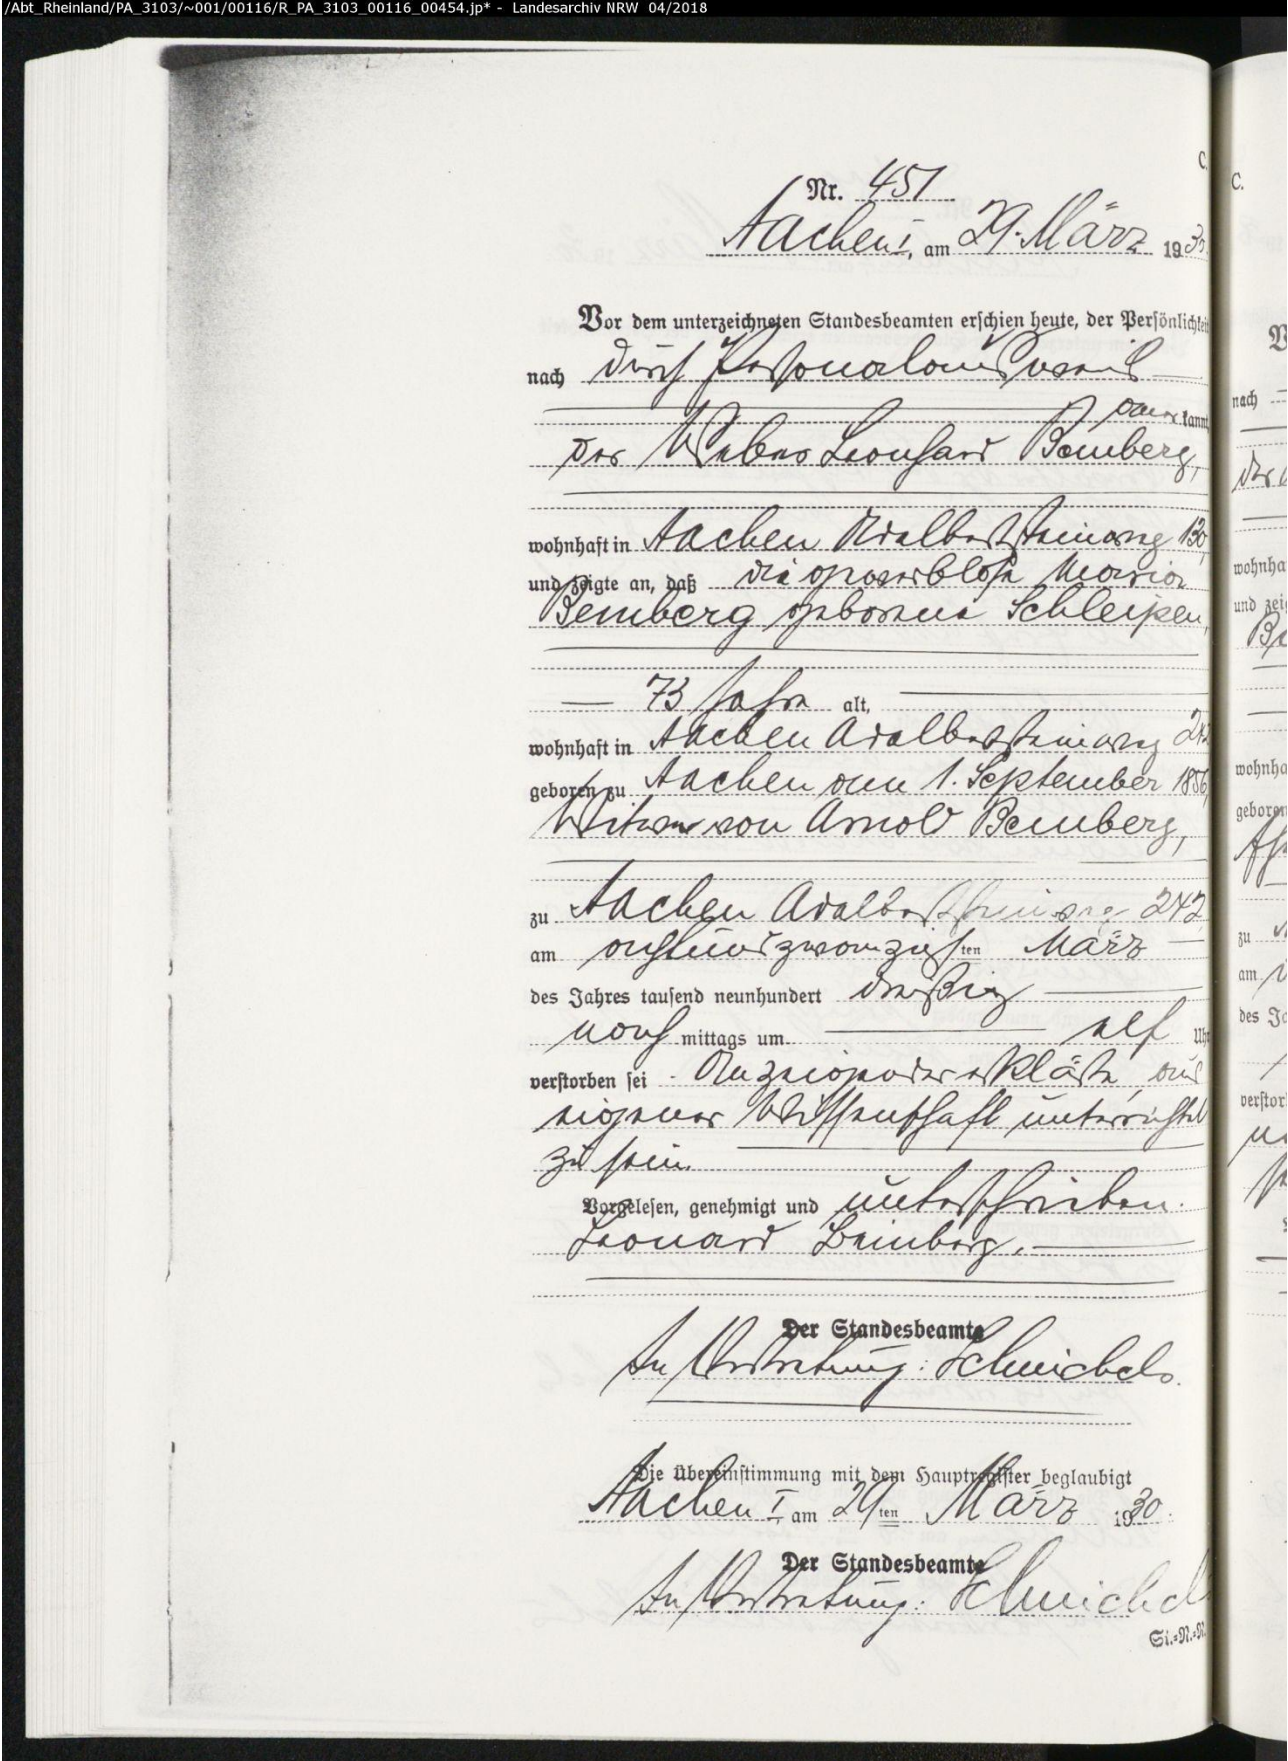 /Abt_Rheinland/PA_3103/~001/00116/R_PA_3103_00116_00454.jp* - Landesarchiv NRW 04/2018
C.
Nr. 451
Aachen I, am 29. März 1930
Vor dem unterzeichneten Standesbeamten erschien heute, der Persönlichkeit
nach durch Personalausweis
kannt,
der Weber Leonhard Bemberg,
wohnhaft in Aachen Adalbertsteinweg 130,
und zeigte an, daß die gewerblose Maria
Bemberg geborene Schleipen,
73 Jahre alt,
wohnhaft in Aachen Adalbertsteinweg 242
geboren zu Aachen am 1. September 1856,
Witwe von Arnold Bemberg,
zu Aachen Adalbertsteinweg 242
am achtundzwanzigsten März
des Jahres tausend neunhundert dreißig
nachmittags um elf Uhr
verstorben sei. Anzeigender erklärte, aus
eigener Wissenschaft unterrichtet
zu sein.
Vorgelesen, genehmigt und unterschrieben.
Leonard Bemberg.
Der Standesbeamte
In Vertretung: Schmickels.
Die Übereinstimmung mit dem Hauptregister beglaubigt
Aachen I, am 29ten März 1930.
Der Standesbeamte
In Vertretung: Schmickels
Si.=R.=R.
C.
nach
wohnha
und zei
wohnha
geboren
zu
am
des Ja
verstor